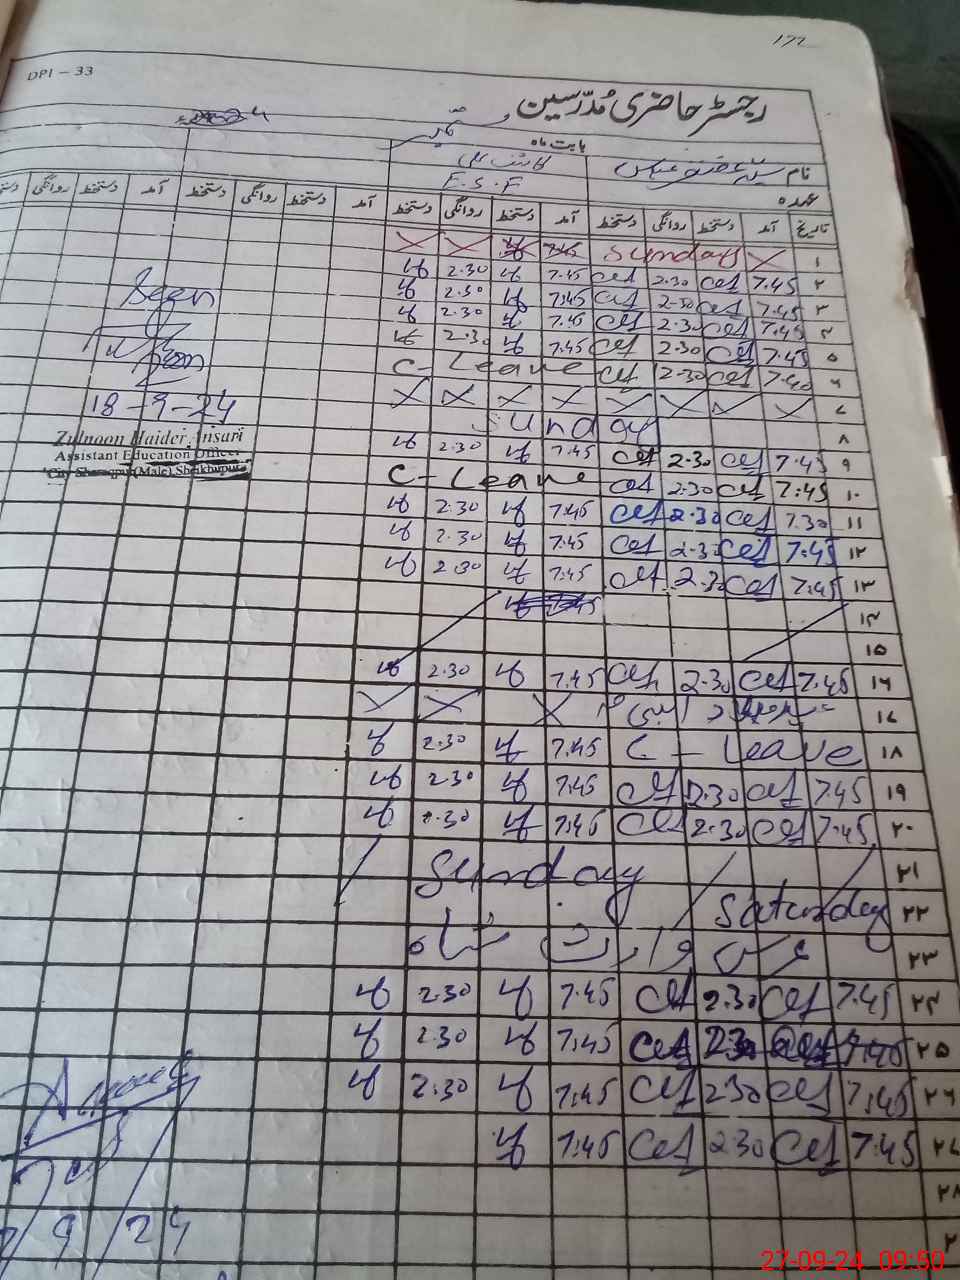 177
DPI – 33
رجسٹر حاضری مُدرّسین
بابت ماہ ستمبر
نام
عہدہ E.S.F
تاریخ آمد دستخط روانگی دستخط آمد دستخط روانگی دستخط آمد دستخط روانگی دستخط آمد دستخط روانگی
۱ X Sunday 7.45 X X
۲ 7.45 2.30 7.45 2.30
۳ 7.45 2.30 7.45 2.30
۴ 7.45 2.30 7.45 2.30
۵ 7.45 2.30 7.45 2.30
۶ 7.40 2.30 C - Leave
۷ X X X X X X X X
۸ Sunday
۹ 7.45 2.30 7.45 2.30
۱۰ 7.45 2.30 C - Leave
۱۱ 7.30 2.30 7.45 2.30
۱۲ 7.45 2.30 7.45 2.30
۱۳ 7.45 2.30 7.45 2.30
۱۴ 7.45
۱۵
۱۶ 7.45 2.30 7.45 2.30
۱۷ عید میلاد النبیؐ X X X
۱۸ C - Leave 7.45 2.30
۱۹ 7.45 2.30 7.45 2.30
۲۰ 7.45 2.30 7.45 2.30
۲۱ Sunday
۲۲ Saturday
۲۳ عرس وارث شاہ
۲۴ 7.45 2.30 7.45 2.30
۲۵ 7.45 2.30 7.45 2.30
۲۶ 7.45 2.30 7.45 2.30
۲۷ 7.45 2.30 7.45
۲۸
Seen
18-9-24
Zulnoon Haider Ansari
Assistant Education Officer
City Sharaqpur (Male) Sheikhupura
9/24
27-09-24 09:50